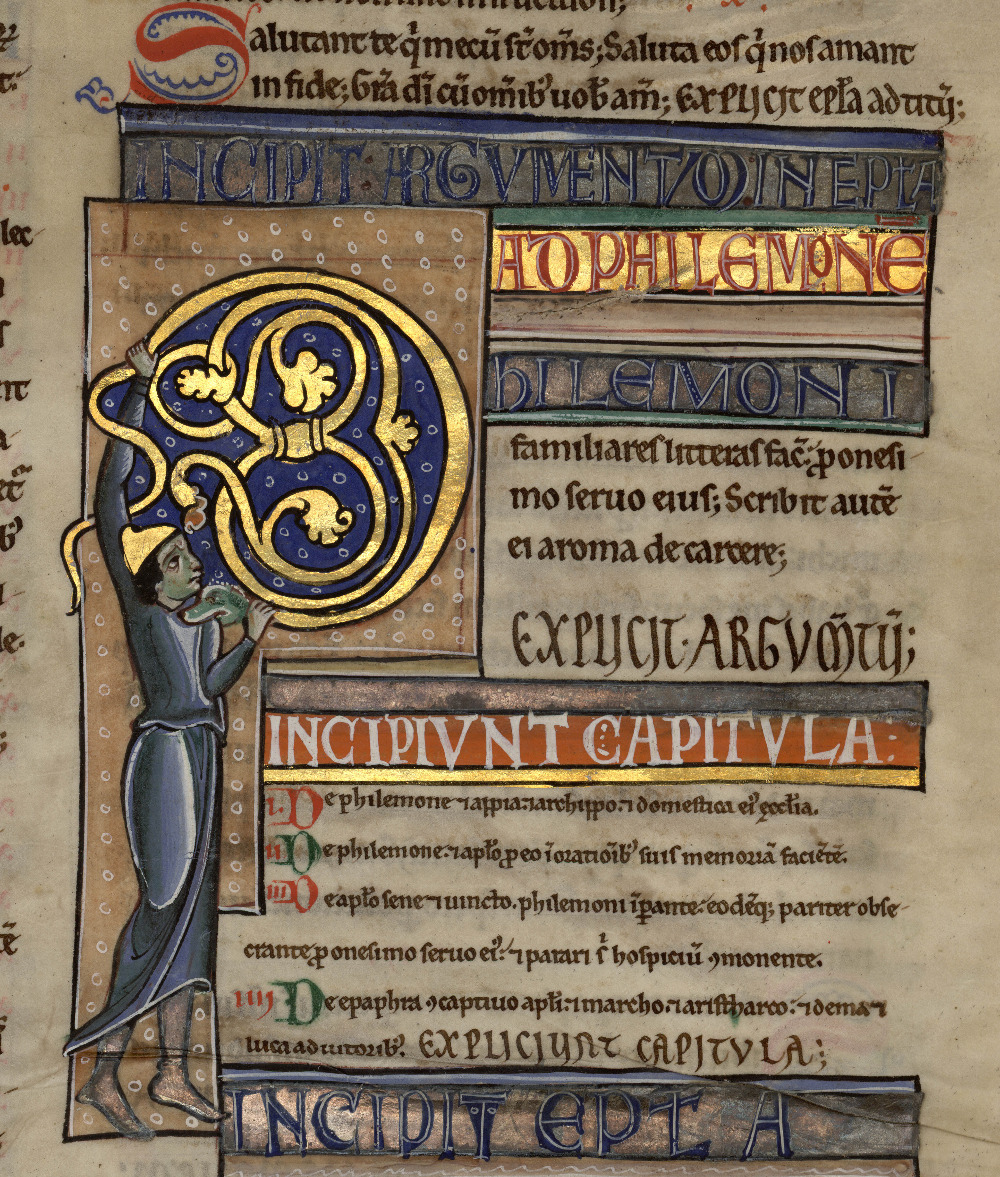 Salutant te q̃ mecũ st̃ om̃s; Saluta eos q̃ nos amant
in fide; Gr̃a dĩ cũ om̃ib' uob̃ am̃; EXPLICIT epl̃a ad titũ;
INCIPIT ARGVMENTV(M) IN EPLA
AD PHILEMONE
PhILEMONI
familiares litteras fac̃; ꝓ onesi
mo seruo eius; Scribit autẽ
ei a roma de carcere;
EXPLICIT· ARGVM̃TŨ;
INCIPIVNT CAPITVLA:
i. De philemone ⁊ appia: ⁊ archippo: ⁊ domestica ei' ęccl̃ia.
ii De philemone: ⁊ apl̃o ꝓ eo ĩ oratiõib' suis memoriã faciẽte.
iii De apl̃o sene ⁊ uincto. philemoni ĩꝑante: eodẽq; pariter obse-
crante ꝓ onesimo seruo ei': ⁊ parari s̃ hospiciũ ꝯmonente.
iiii De epaphra ꝯcaptiuo apl̃i: ⁊ marcho: ⁊ aristharco: ⁊ dema ⁊
luca adiutorib'. EXPLICIUNT CAPITVLA;
INCIPIT EPŁA